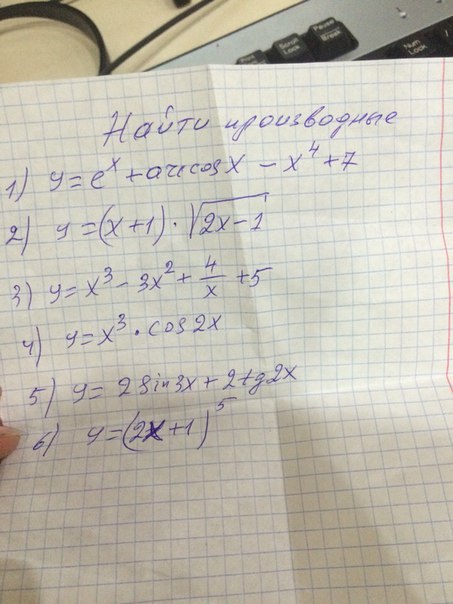 Pause
Break
Scroll
Lock
Num
Lock
Найти производные
1) y = e^x + arccos x − x^4 + 7
2) y = (x+1) · √(2x−1)
3) y = x^3 − 3x^2 + 4/x + 5
4) y = x^3 · cos 2x
5) y = 2 sin 3x + 2 tg 2x
6) y = (2x+1)^5